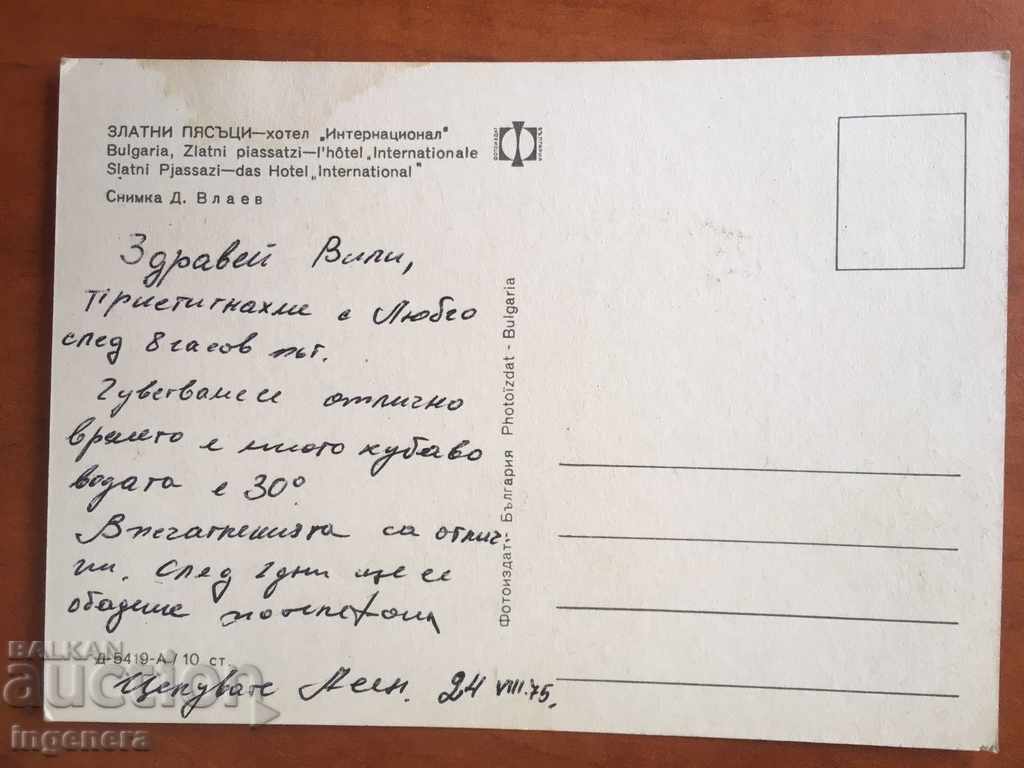 ЗЛАТНИ ПЯСЪЦИ—хотел „Интернационал"
Bulgaria, Zlatni piassatzi—l'hôtel „Internationale
Slatni Pjassazi—das Hotel „International"
Снимка Д. Влаев
ФОТОИЗДАТ
БЪЛГАРИЯ
Здравей Вили,
Пристигнахме с Любчо
след 8 часов път.
Чувстваме се отлично
времето е много хубаво
водата е 30°
Впечатленията са отлич-
ни. След 2 дни ще се
обадиме по телефона
Д-5419-А / 10 ст.
Целувате Асен. 24 VIII.75.
Фотоиздат - България Photoïzdat - Bulgaria
BALKAN
auction
ingenera